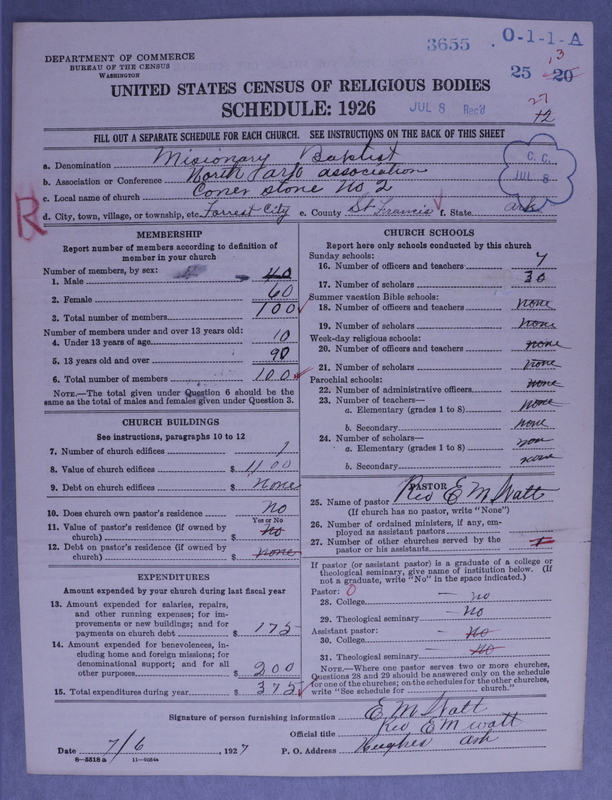 3655 O-1-1-A
DEPARTMENT OF COMMERCE
BUREAU OF THE CENSUS
WASHINGTON
25 20 13
UNITED STATES CENSUS OF RELIGIOUS BODIES
SCHEDULE: 1926
JUL 8 Rec'd
27
12
FILL OUT A SEPARATE SCHEDULE FOR EACH CHURCH. SEE INSTRUCTIONS ON THE BACK OF THIS SHEET
C. C.
JUL 8
a. Denomination Misionary Baptist
b. Association or Conference North association
c. Local name of church Coner Stone No 2
R
d. City, town, village, or township, etc. Forrest City e. County St Francis f. State Ark
MEMBERSHIP
Report number of members according to definition of member in your church
Number of members, by sex:
1. Male 40
2. Female 60
3. Total number of members 100
Number of members under and over 13 years old:
4. Under 13 years of age 10
5. 13 years old and over 90
6. Total number of members 100
NOTE.—The total given under Question 6 should be the same as the total of males and females given under Question 3.
CHURCH BUILDINGS
See instructions, paragraphs 10 to 12
7. Number of church edifices 1
8. Value of church edifices $ 1100
9. Debt on church edifices $ None
10. Does church own pastor's residence No
Yes or No
11. Value of pastor's residence (if owned by church) $ No
12. Debt on pastor's residence (if owned by church) $ none
EXPENDITURES
Amount expended by your church during last fiscal year
13. Amount expended for salaries, repairs, and other running expenses; for improvements or new buildings; and for payments on church debt $ 175
14. Amount expended for benevolences, including home and foreign missions; for denominational support; and for all other purposes $ 200
15. Total expenditures during year $ 375
CHURCH SCHOOLS
Report here only schools conducted by this church
Sunday schools:
16. Number of officers and teachers 7
17. Number of scholars 30
Summer vacation Bible schools:
18. Number of officers and teachers none
19. Number of scholars none
Week-day religious schools:
20. Number of officers and teachers none
21. Number of scholars none
Parochial schools:
22. Number of administrative officers none
23. Number of teachers—
a. Elementary (grades 1 to 8) none
b. Secondary none
24. Number of scholars—
a. Elementary (grades 1 to 8) non
b. Secondary none
PASTOR
25. Name of pastor Rev E M Watt
(If church has no pastor, write "None")
26. Number of ordained ministers, if any, employed as assistant pastors
27. Number of other churches served by the pastor or his assistants 1
If pastor (or assistant pastor) is a graduate of a college or theological seminary, give name of institution below. (If not a graduate, write "No" in the space indicated.)
Pastor: 0
28. College no
29. Theological seminary No
Assistant pastor:
30. College No
31. Theological seminary No
NOTE.—Where one pastor serves two or more churches, Questions 28 and 29 should be answered only on the schedule for one of the churches; on the schedules for the other churches, write "See schedule for church."
Signature of person furnishing information E. M. Watt
Official title Rev E M Watt
Date 7/6, 1927 P. O. Address Hughes Ark
8—5518 a